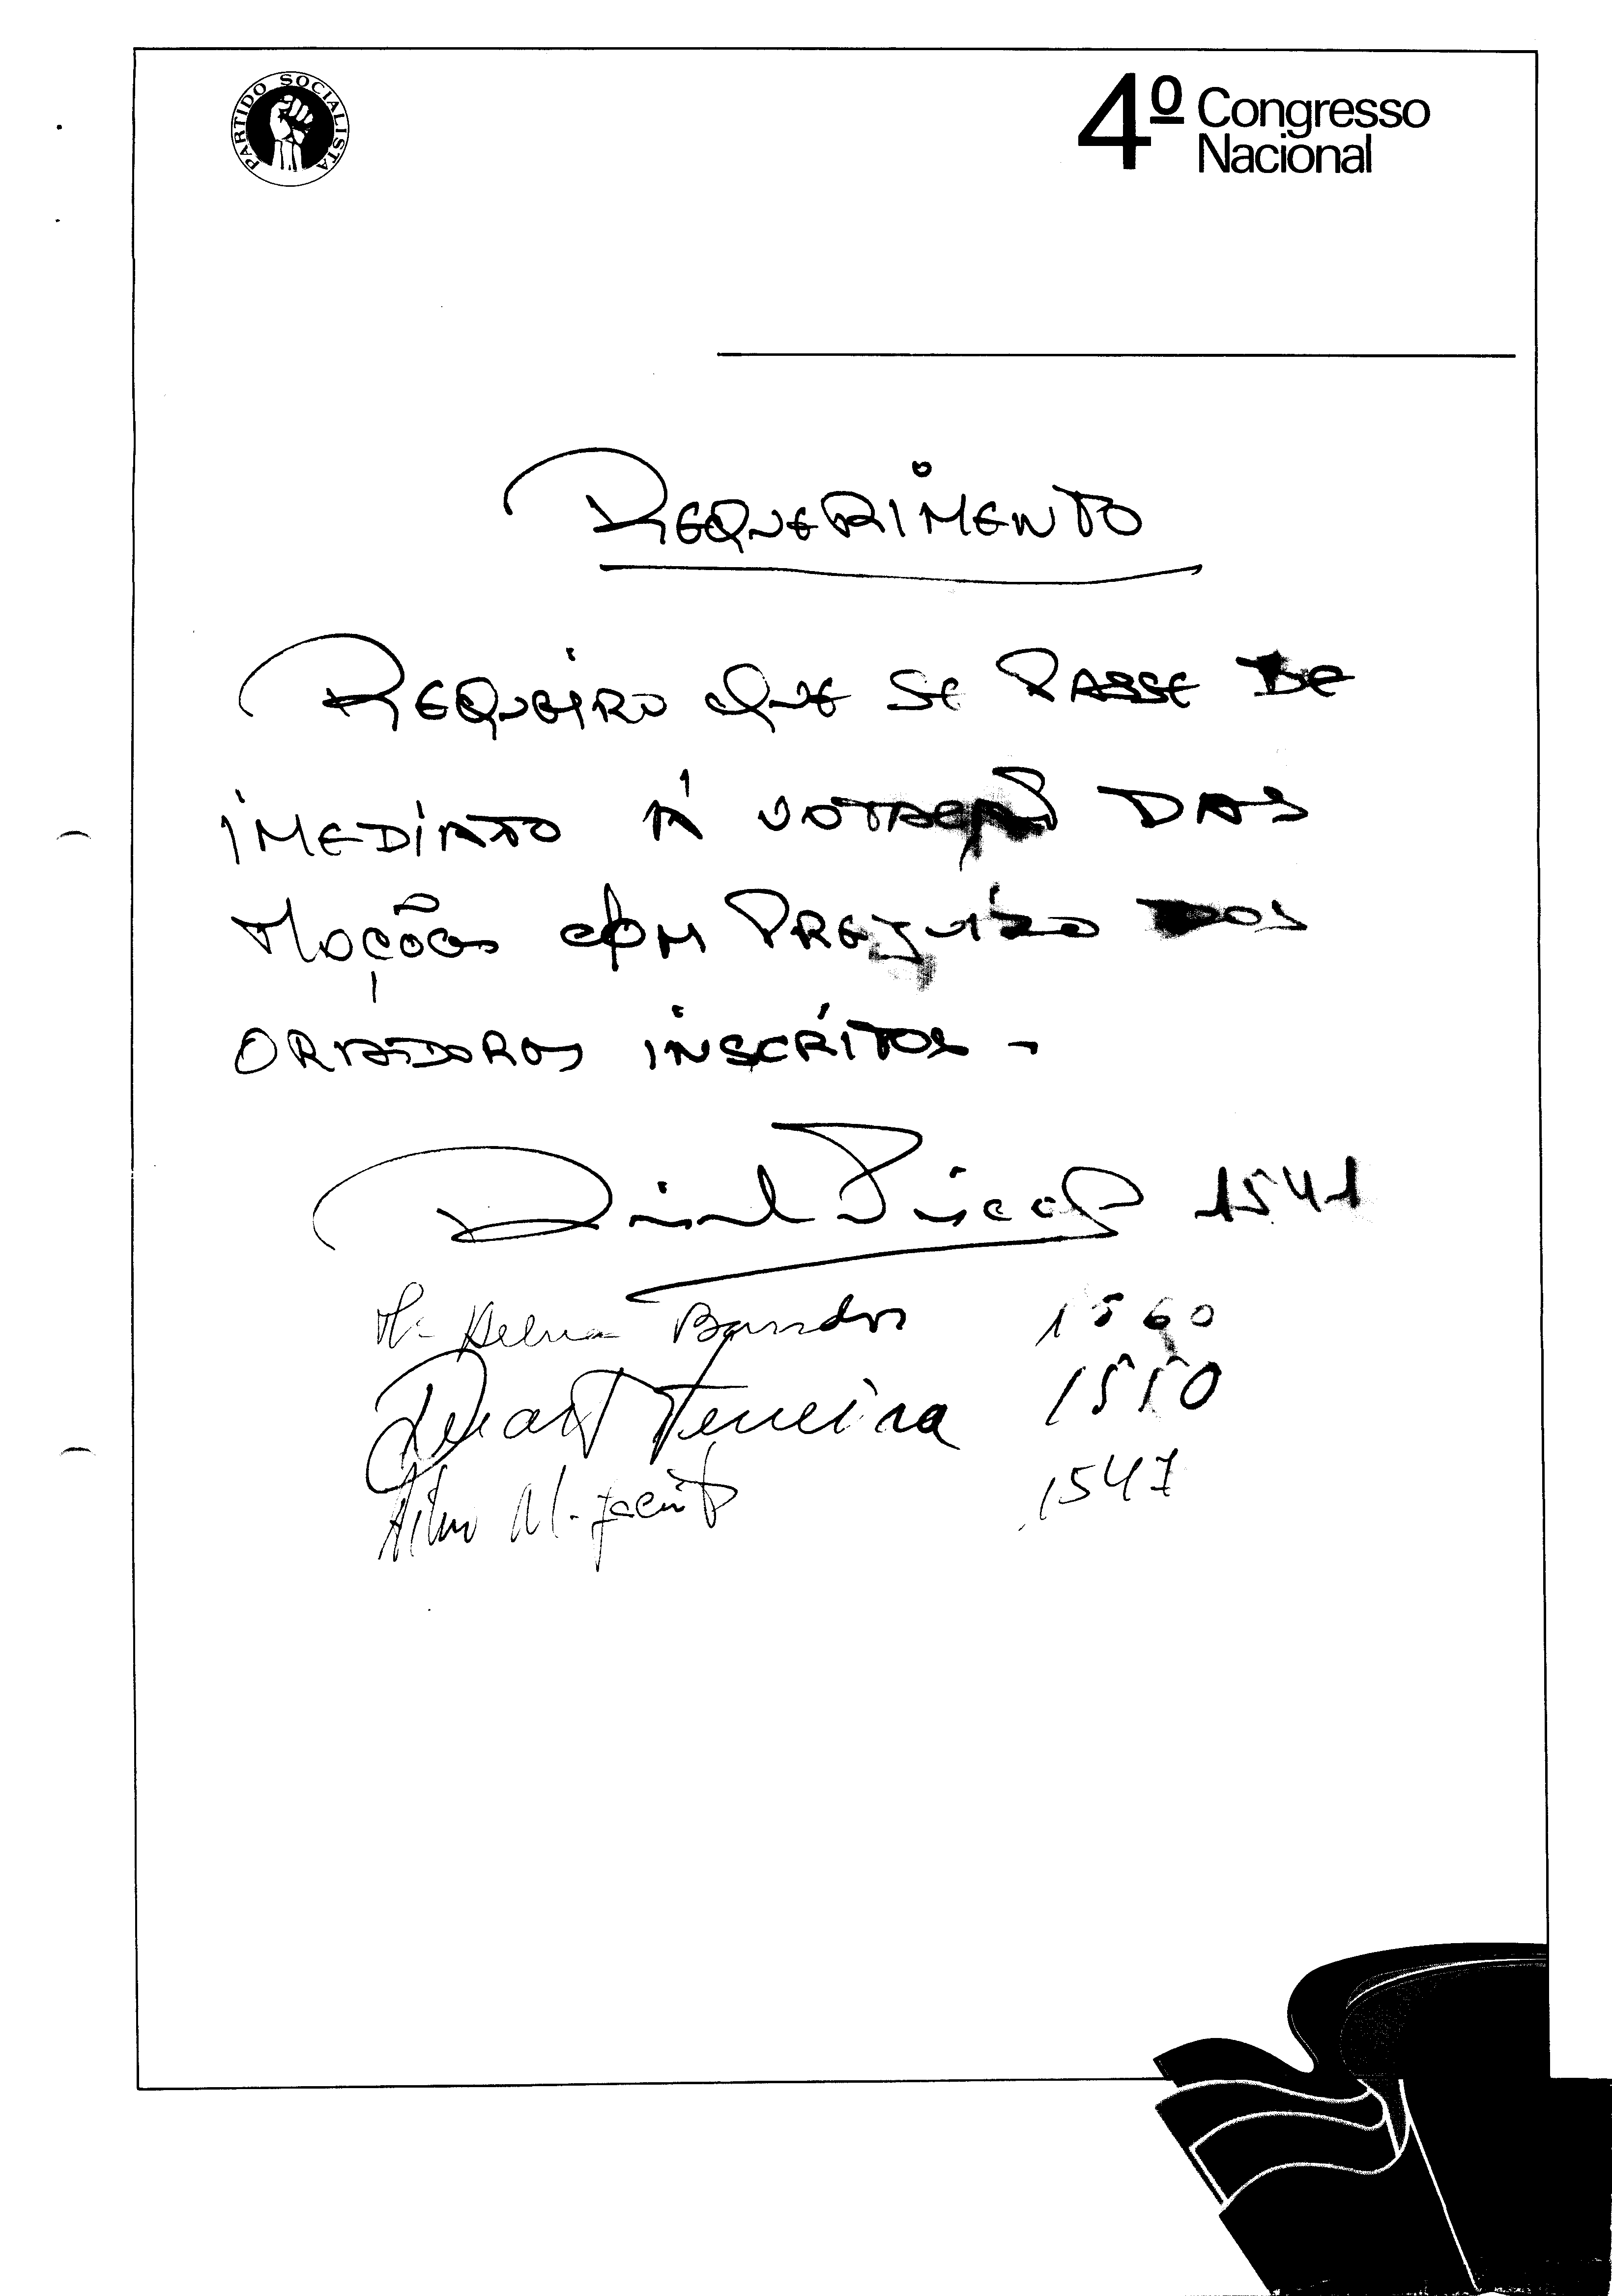 PARTIDO SOCIALISTA
4º Congresso
Nacional
REQUERIMENTO
REQUEIRO QUE SE PASSE DE
IMEDIATO À VOTAÇÃO DAS
MOÇÕES COM PREJUÍZO DOS
ORADORES INSCRITOS -
1541
1560
Duarte Ferreira 1550
1547